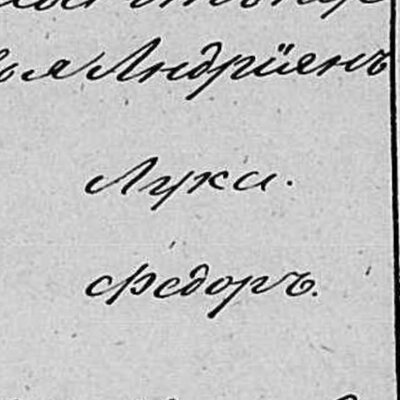 Андріянъ
Лука.
Федоръ.